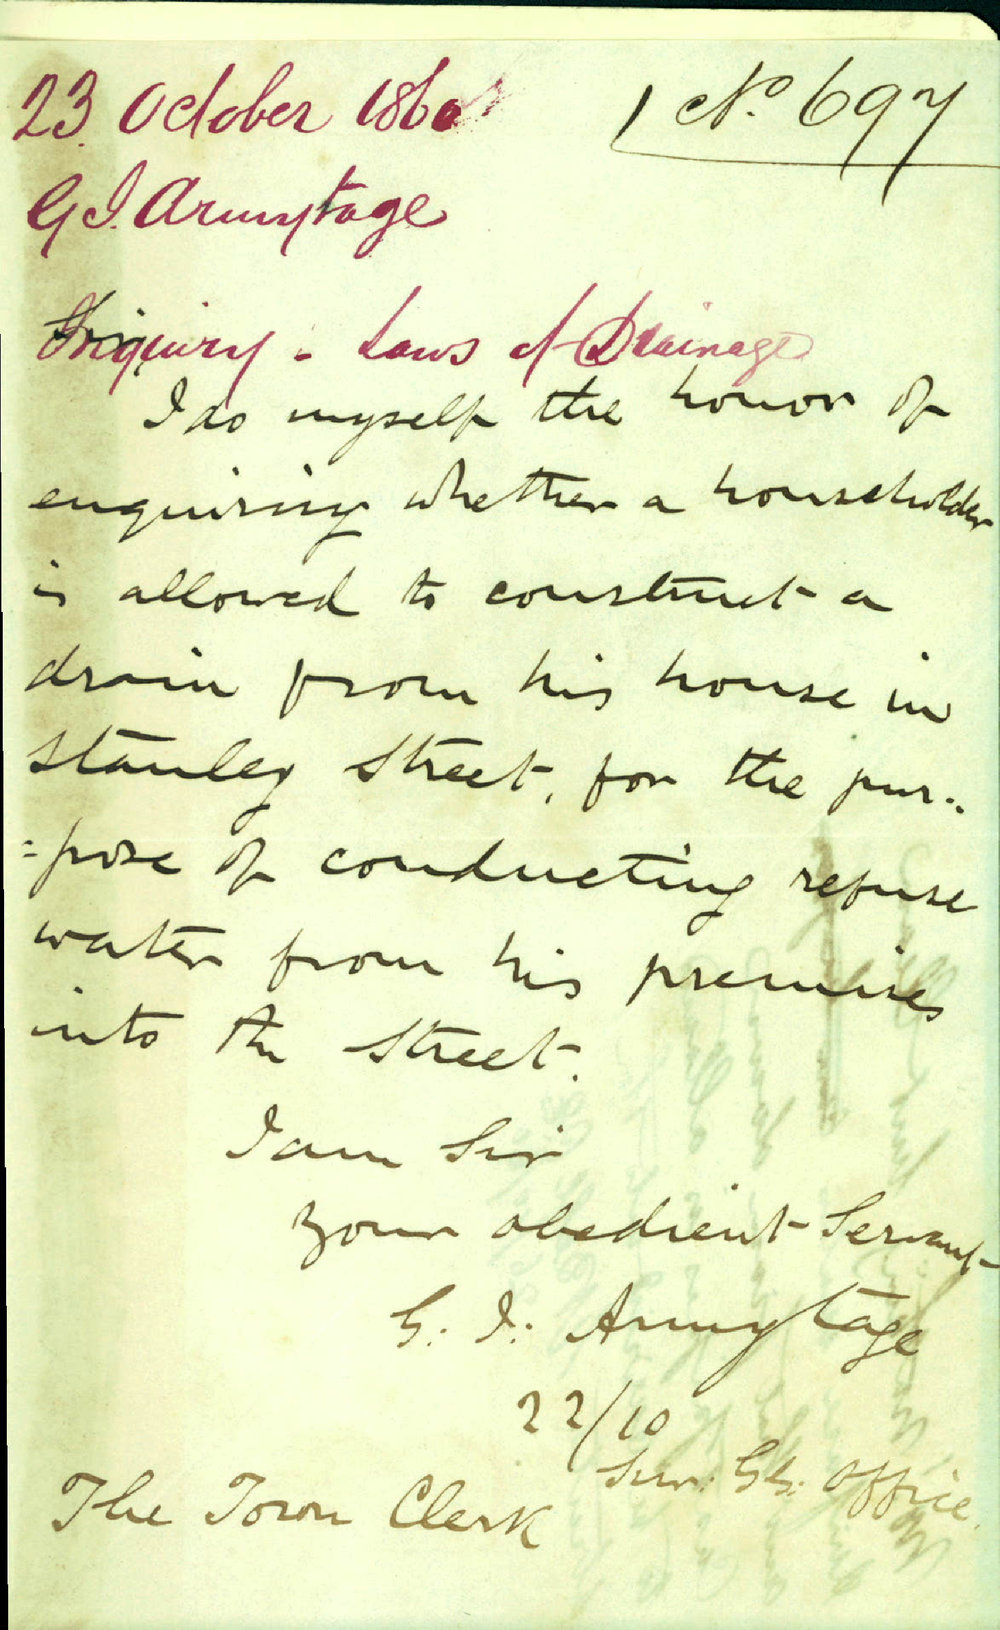 23 October 1860
No. 697
G I. Armytage
Inquiry - Laws of Drainage
I do myself the honor of
enquiring whether a householder
is allowed to construct a
drain from his house in
Stanley Street, for the pur-
=pose of conducting refuse
water from his premises
into the Street.
I am Sir
Your obedient Servant
G. I. Armytage
22/10
Sur: Gl: Office
The Town Clerk